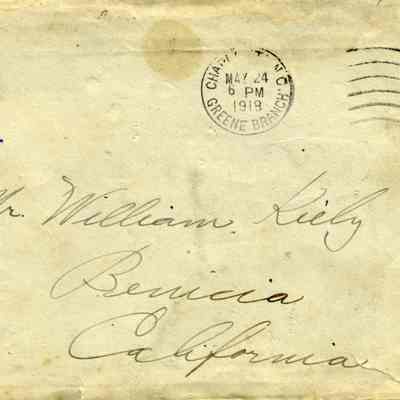 MAY 24
6 PM
1918
GREENE BRANCH
Mr. William Kiely
Benicia
California